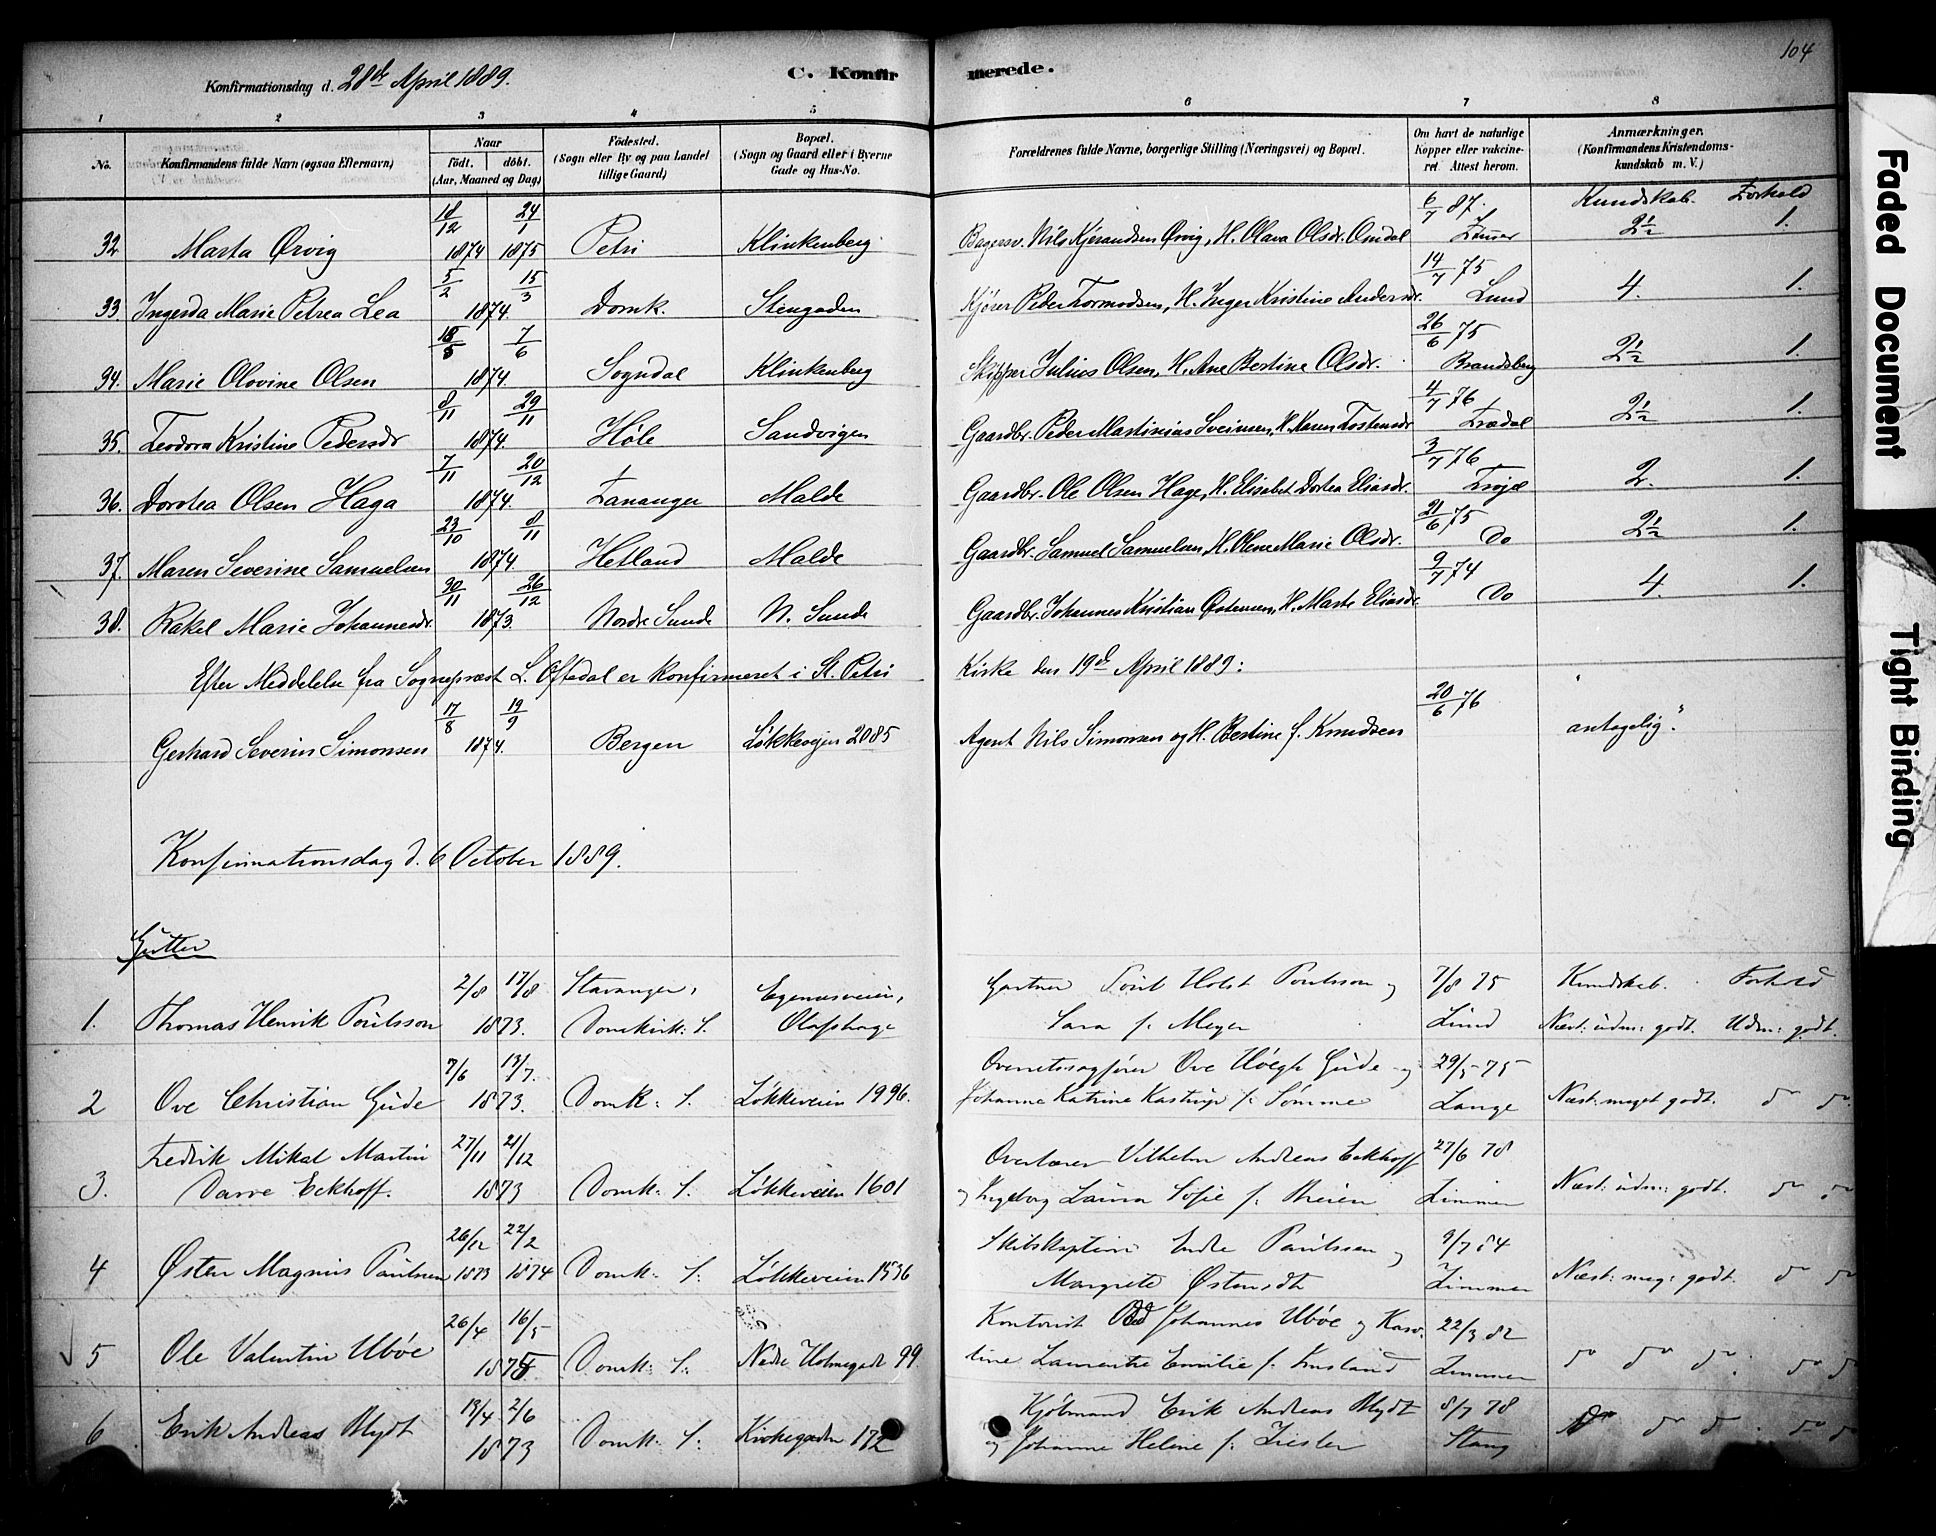 104
Konfirmationsdag d. 28de April 1889.
C. Konfirmerede.
1 2 3 4 5 6 7 8
No. Konfirmandens fulde Navn (ogsaa Efternavn) Naar født. døbt. (Aar, Maaned og Dag) Fødested. (Sogn eller By og paa Landet tillige Gaard) Bopæl. (Sogn og Gaard eller i Byerne Gade og Hus-No. Forældrenes fulde Navne, borgerlige Stilling (Næringsvei) og Bopæl. Om havt de naturlige Kopper eller vakcineret. Attest herom. Anmærkninger. (Konfirmandens Kristendomskundskab m. V.)
Kundskab. Forhold
32 Marta Ørvig 18/12 1874 24/1 1875 Petri Klinkenberg Bagersv. Nils Kjerandsen Ørvig, H. Olava Olsdr. Omdal 6/7 87. 2½ 1.
33. Ingerda Marie Petrea Lea 5/2 15/3 1874. Domk. Stengaden Kjører Peder Tormodsen, H. Inger Kristine Andersdr. 14/7 75 Lund 4. 1.
34. Marie Olovine Olsen 18/5 7/6 1874. Sogndal Klinkenberg Skipper Julius Olsen, H. Ane Bertine Olsdr. 26/6 75 Brandsberg 2½ 1.
35. Teodora Kristine Pedersdr 8/11 29/11 1874. Høle Sandvigen Gaardbr. Peder Martinius Sveinsen, H. Maren Tostensdr 4/7 76 Trædal 2½ 1.
36. Dorotea Olsen Haga 7/11 20/12 1874. Tananger Malde Gaardbr. Ole Olsen Hage, H. Elisabet Dortea Eliasdr. 3/7 76 2. 1.
37. Maren Severine Samuelsen 23/10 8/11 1874 Hetland Malde Gaardbr. Samuel Samuelsen, H. Olene Marie Olsdr. 21/6 75 Do 2½ 1.
38. Rakel Marie Johannesdr. 30/11 26/12 1873. Nordre Sunde N. Sunde Gaardbr. Johannes Kristian Østensen, H. Marte Eliasdr 9/7 74 Do 4. 1.
Efter Meddelelse fra Sognepræst L. Oftedal er konfirmeret i St. Petri Kirke den 19de April 1889:
Gerhard Severin Simonsen 17/8 19/9 1874. Bergen Løkkeveien 2085 Agent Nils Simonsen og H. Bertine f. Knudsen 20/6 76 "antagelig".
Konfirmationsdag d. 6 October 1889.
Gutter
Kundskab. Forhold
1. Thomas Henrik Poulsson 2/8 17/8 1873. Stavanger, Domkirk: S. Egenesveien, Olafshage Gartner Poul Holst Poulsson og Sara f: Meyer 7/8 75 Lund Næst: udm: godt. Udm: godt.
2 Ove Christian Gude 7/6 13/7. 1873. Domk: S. Løkkeveien 1996. Overretssagfører Ove Høegh Gude og Johanne Katrine Kastrup f: Sømme 29/5 75 Lange Næst: meget godt. do do
3. Fredrik Mikal Martin Darre Eckhoff. 27/11 21/12 1873 Domk: S. Løkkeveien 1601 Overlærer Vilhelm Andreas Eckhoff og Ingeborg Laura Sofie f: Breien 27/6 78 Zimmer Næst: udm: godt. do do
4 Østen Magnus Paulsen 26/12 1873 22/2 1874 Domk: S: Løkkeveien 1536 Skibskaptein Endre Paulssen og Margrete Østensdt 9/7 84 Zimmer Næst: meg: godt. do do
5 Ole Valentin Ubøe 26/4 16/5 Domk: S: Nedre Holmegade 99 Kontorist Johannes Ubøe og Karoline Laurentze Emilie f: 22/3 82 Zimmer do do do. do do
6 Erik Andreas Blydt 19/4 2/6 1873 Domk: S: Kirkegaden 172 Kjøbmand Erik Andreas Blydt og Johanne Helene f: 8/7 78 Stang do do do. do do
Faded Document
Tight Binding